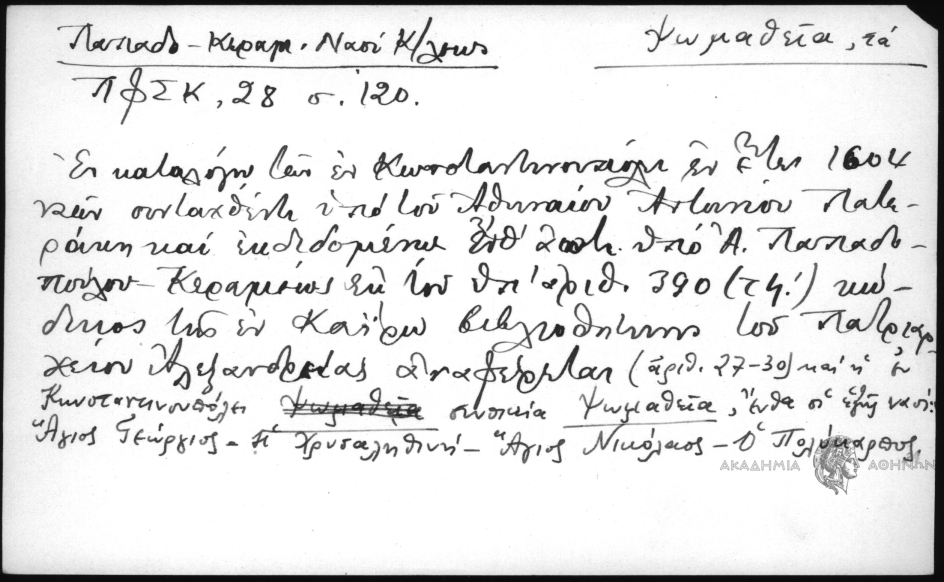 Παπαδ - Κεραμ. Ναοί Κ/λεως
Ψωμαθεῖα, τά
ΠΦΣΚ, 28 σ. 120.
Ἐν καταλόγῳ τῶν ἐν Κωνσταντινουπόλει ἐν ἔτει 1604
ναῶν συνταχθέντι ὑπό τοῦ Ἀθηναίου Ἀντωνίου Πατε-
ράκη καί ἐκδιδομένῳ ἔνθ' ἀνωτ. ὑπό Ἀ. Παπαδο-
πούλου - Κεραμέως ἐκ τοῦ ὑπ' ἀριθ. 390 (τη΄) κώ-
δικος τῆς ἐν Καΐρῳ βιβλιοθήκης τοῦ Πατριαρ-
χείου Ἀλεξανδρείας ἀναφέρεται (ἀριθ. 27-30) καί ἡ ἐν
Κωνσταντινουπόλει Ψωμαθεῖα συνοικία Ψωμαθεῖα, ἔνθα οἱ ἑξῆς ναοί:
Ἅγιος Γεώργιος - Ἡ Χρυσαληθινή - Ἅγιος Νικόλαος - Ὁ Πολύκαρπος.
ΑΚΑΔΗΜΙΑ ΑΘΗΝΩΝ